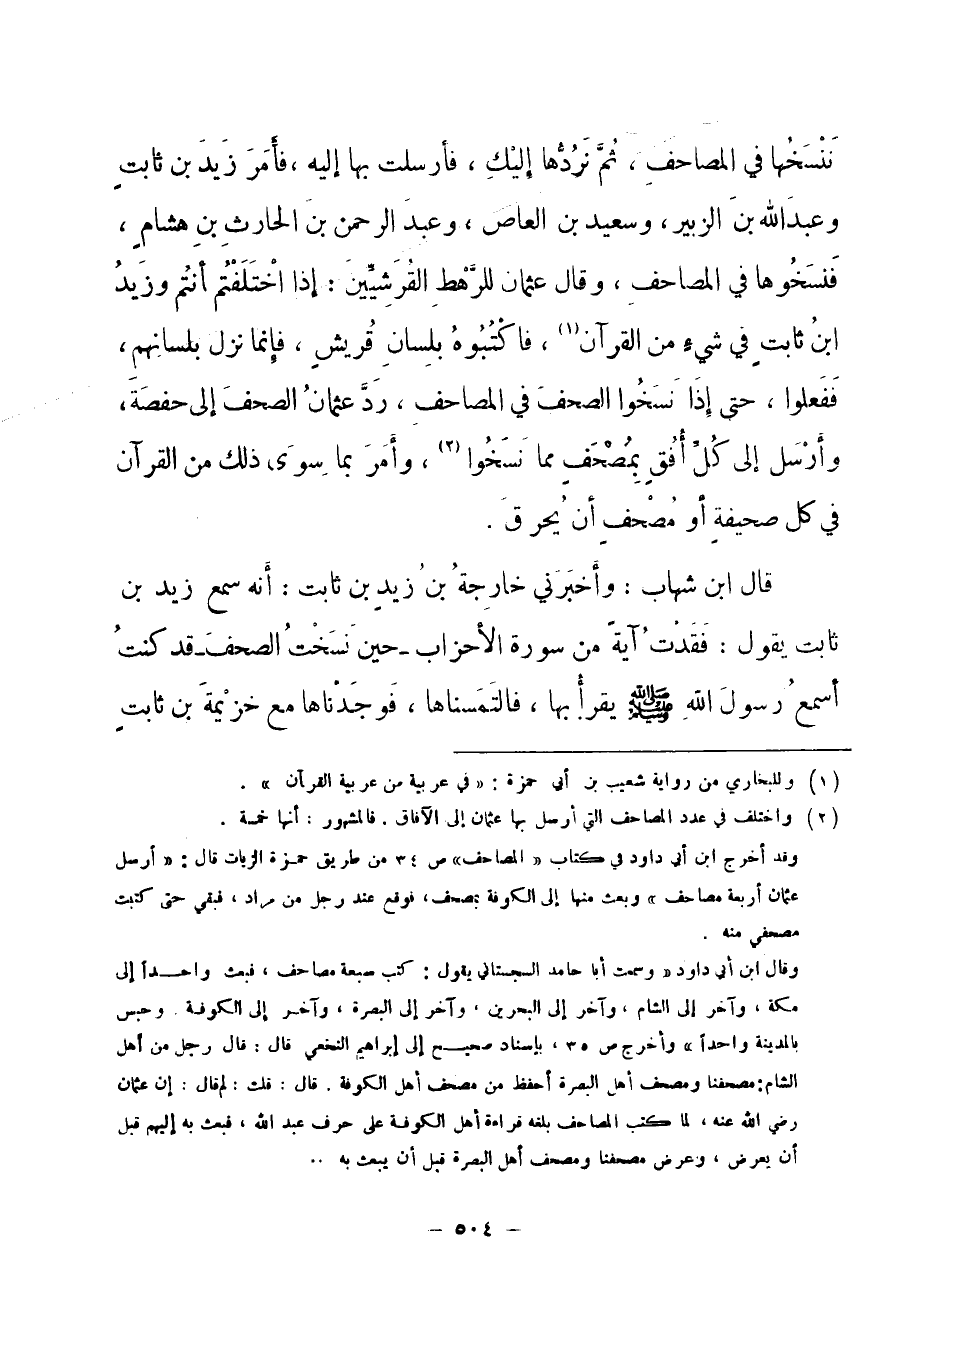 نَنْسَخُها في المصاحفِ ، ثُمَّ نَرُدُّها إِلَيْكِ ، فأرسلت بها إليه ،فأَمَرَ زَيدَ بن ثابتٍ
وعبدَالله بنَ الزبير، وسعيد بن العاص ، وعبدَ الرحمن بن الحارثِ بنِ هشامٍ ،
فَنسَخُوها في المصاحفِ ، وقال عثمان للرَّهْطِ القُرَشِيِّينَ : إذا اخْتَلَفْتُم أنتُم وزَيدُ
ابنُ ثابتٍ في شيءٍ من القرآن(١) ، فاكْتُبُوهُ بلِسانِ قُريشٍ ، فإِنما نزل بلسانِهم،
فَفَعلوا ، حتى إِذَا نَسَخُوا الصحفَ في المصاحفِ ، رَدَّ عثمانُ الصحفَ إلى حفصَةَ،
وأَرْسَل إلى كُلِّ أُفُقٍ بِمُصْحَفٍ مما نَسَخُوا (٢) ، وأَمَرَ بما سِوَى ذلك من القرآن
في كل صحيفةٍ أو مُصْحفٍ أن يُحرقَ .
قال ابن شهاب : وأَخبَرَني خارجةُ بنُ زيدِ بن ثابت : أَنه سمع زيد بن
ثابت يقول : فَقَدْتُ آيةً من سورة الأَحزاب ـ حين نَسَخْتُ الصحفَ ـ قد كنتُ
أسمعُ رسولَ اللهِ ﷺ يقرأُ بها ، فالتَمَسناها ، فَوجَدْناها مع خزَيْمةَ بن ثابتٍ
(١) وللبخاري من رواية شعيب بن أبي حمزة : « في عربية من عربية القرآن » .
(٢) واختلف في عدد المصاحف التي أرسل بها عثمان إلى الآفاق . فالمشهور : أنها خمسة .
وقد أخرج ابن أبي داود في كتاب « المصاحف» ص ٣٤ من طريق حمزة الزيات قال : « أرسل
عثمان أربعة مصاحف » وبعث منها إلى الكوفة بمصحف، فوقع عند رجل من مراد ، فبقي حتى كتبت
مصحفي منه .
وقال ابن أبي داود « وسمعت أبا حامد السجستاني يقول : كتب سبعة مصاحف ، فبعث واحـــداً إلى
مكة ، وآخر إلى الشام ، وآخر إلى البحرين ، وآخر إلى البصرة ، وآخـر إلى الكوفـة . وحبس
بالمدينة واحداً » وأخرج ص ٣٥ ، بإسناد صحيــح إلى إبراهيم النخعي قال : قال رجل من أهل
الشام : مصحفنا ومصحف أهل البصرة أحفظ من مصحف أهل الكوفة . قال : قلت : لم قال : إن عثمان
رضي الله عنه ، لما كتب المصاحف بلغه قراءة أهل الكوفـة على حرف عبد الله ، فبعث به إليهم قبل
أن يعرض ، وعرض مصحفنا ومصحف أهل البصرة قبل أن يبعث به ..
— ٥٠٤ —